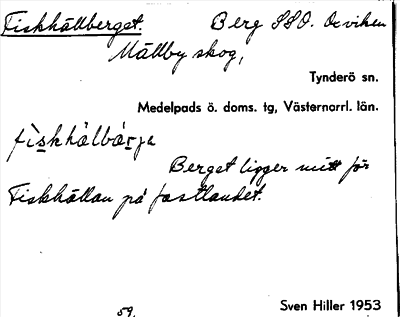 Fiskhällberget. Berg SSO. Oxviken
Mällby skog,
Tynderö sn.
Medelpads ö. doms. tg, Västernorrl. län.
fiskhälbárja
Berget ligger mitt för
Fiskhällan på fastlandet.
59.
Sven Hiller 1953